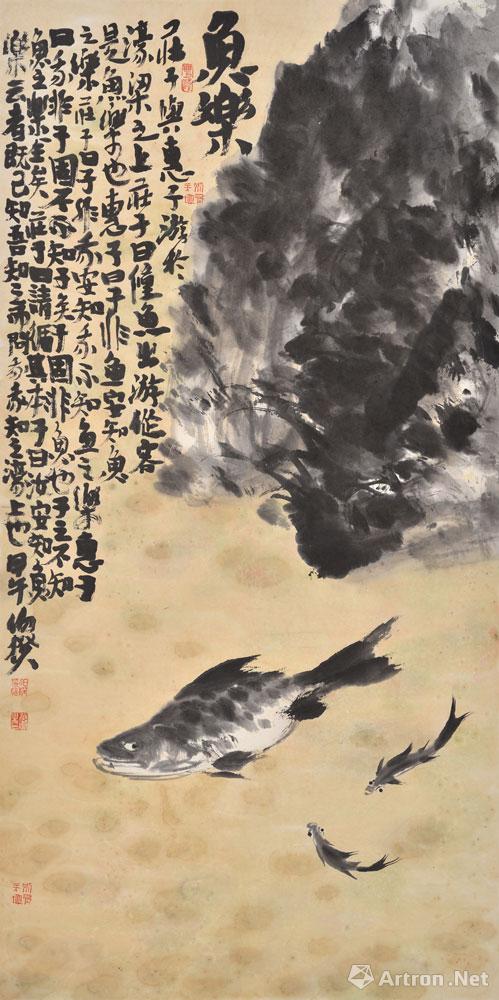 魚樂
莊子與惠子游於
濠梁之上莊子曰儵魚出游從容
是魚樂也惠子曰子非魚安知魚
之樂莊子曰子非我安知我不知魚之樂惠子
曰我非子固不知子矣子固非魚也子之不知
魚之樂全矣莊子曰請循其本子曰汝安知魚
樂云者既已知吾知之而問我我知之濠上也甲午
Artron.Net